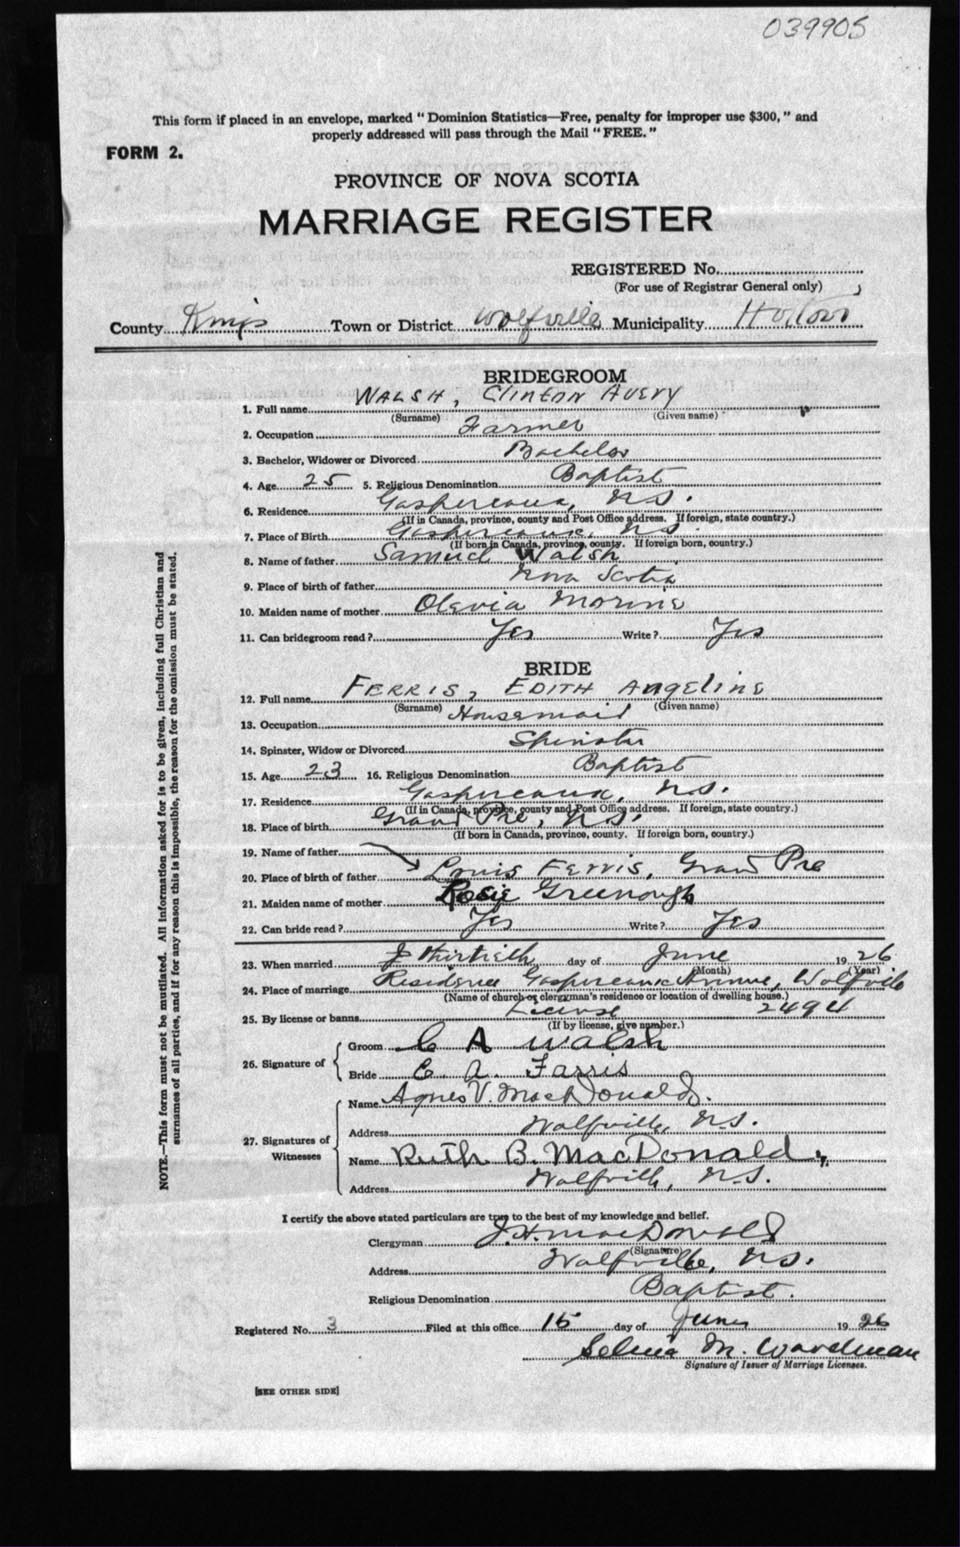 039905
This form if placed in an envelope, marked "Dominion Statistics—Free, penalty for improper use $300," and
properly addressed will pass through the Mail "FREE."
FORM 2.
PROVINCE OF NOVA SCOTIA
MARRIAGE REGISTER
REGISTERED No.
(For use of Registrar General only)
County Kings Town or District Wolfville Municipality Horton
BRIDEGROOM
1. Full name WALSH, Clinton Avery
(Surname) (Given name)
2. Occupation Farmer
3. Bachelor, Widower or Divorced Bachelor
4. Age 25 5. Religious Denomination Baptist
6. Residence Gaspereaux, N.S.
(If in Canada, province, county and Post Office address. If foreign, state country.)
7. Place of Birth Gaspereaux, N.S.
(If born in Canada, province, county. If foreign born, country.)
8. Name of father Samuel Walsh
9. Place of birth of father Nova Scotia
10. Maiden name of mother Olevia Morine
11. Can bridegroom read? Yes Write? Yes
BRIDE
12. Full name FERRIS, EDITH Angeline
(Surname) (Given name)
13. Occupation Housemaid
14. Spinster, Widow or Divorced Spinster
15. Age 23 16. Religious Denomination Baptist
17. Residence Gaspereaux, N.S.
(If in Canada, province, county and Post Office address. If foreign, state country.)
18. Place of birth Grand Pre, N.S.
(If born in Canada, province, county. If foreign born, country.)
19. Name of father
20. Place of birth of father Louis Ferris, Grand Pre
21. Maiden name of mother Rosie Greenough
22. Can bride read? Yes Write? Yes
23. When married thirtieth day of June 1926
(Month) (Year)
24. Place of marriage Residence Gaspereaux Avenue, Wolfville
(Name of church or clergyman's residence or location of dwelling house.)
25. By license or banns License 2494
(If by license, give number.)
26. Signature of
Groom C A Walsh
Bride E. A. Farris
27. Signatures of Witnesses
Name Agnes V. MacDonald.
Address Wolfville, N.S.
Name Ruth B. MacDonald,
Address Wolfville, N.S.
I certify the above stated particulars are true to the best of my knowledge and belief.
Clergyman J. H. MacDonald
(Signature)
Address Wolfville, N.S.
Religious Denomination Baptist.
Registered No. 3 Filed at this office 15 day of June 1926
Selina M. Woodman
Signature of Issuer of Marriage Licenses.
[SEE OTHER SIDE]
NOTE.—This form must not be mutilated. All information asked for is to be given, including full Christian and
surnames of all parties, and if for any reason this is impossible, the reason for the omission must be stated.